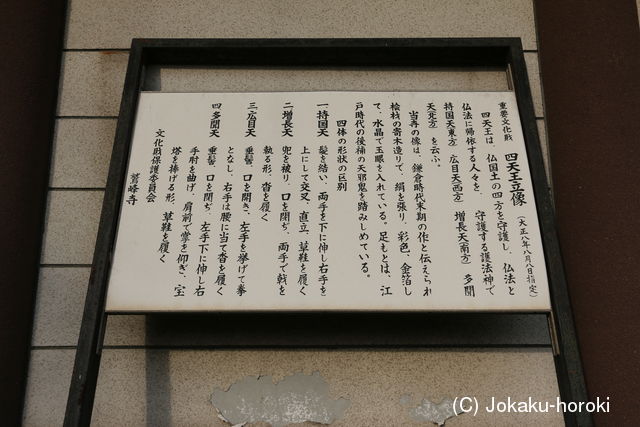 重要文化財
四天王立像（大正八年八月八日指定）
四天王は、仏国土の四方を守護し、仏法と
仏法に帰依する人々を、守護する護法神で
持国天(東方) 広目天(西方) 増長天(南方) 多聞
天(北方) を云ふ。
当寺の像は、鎌倉時代末期の作と伝えられ
桧材の寄木造りで、絹を張り、彩色、金箔し
て、水晶で玉眼を入れている。足もとは、江
戸時代の後補の天邪鬼を踏みしめている。
四体の形状の区別
一持国天 髪を結い、両手を下に伸し右手を
上にして交叉、直立、草鞋を履く
二増長天 兜を被り、口を閉ぢ、両手で戟を
執る形、沓を履く
三広目天 垂髻、口を開き、左手を挙げて拳
となし、右手は腰に当て沓を履く
四多聞天 垂髻、口を閉ぢ、左手下に伸し右
手肘を曲げ、肩前で掌を仰ぎ、宝
塔を捧げる形、草鞋を履く
文化財保護委員会
鷲峰寺
(C) Jokaku-horoki